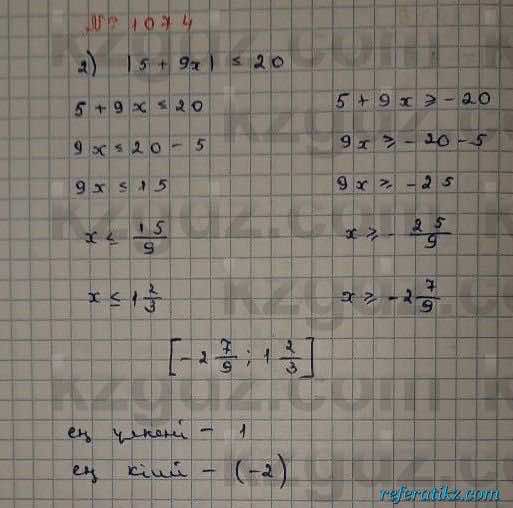 № 1074
2) |5 + 9x| ≤ 20
5 + 9x ≤ 20
5 + 9x ≥ -20
9x ≤ 20 - 5
9x ≥ -20 - 5
9x ≤ 15
9x ≥ -25
x ≤ 15/9
x ≥ - 25/9
x ≤ 1 2/3
x ≥ -2 7/9
[-2 7/9 ; 1 2/3]
ең үлкені - 1
ең кіші - (-2)
kzgdz.com
referatikz.com